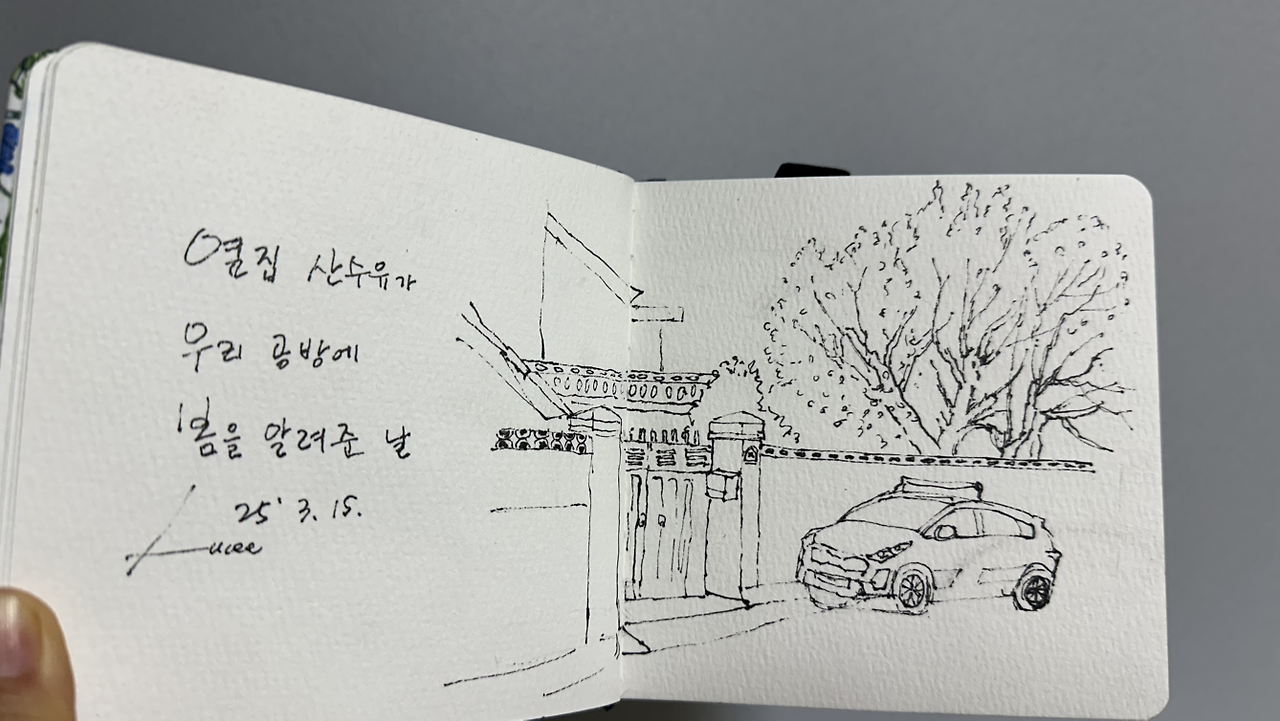 옆집 산수유가
우리 공방에
봄을 알려준 날
25' 3. 15.